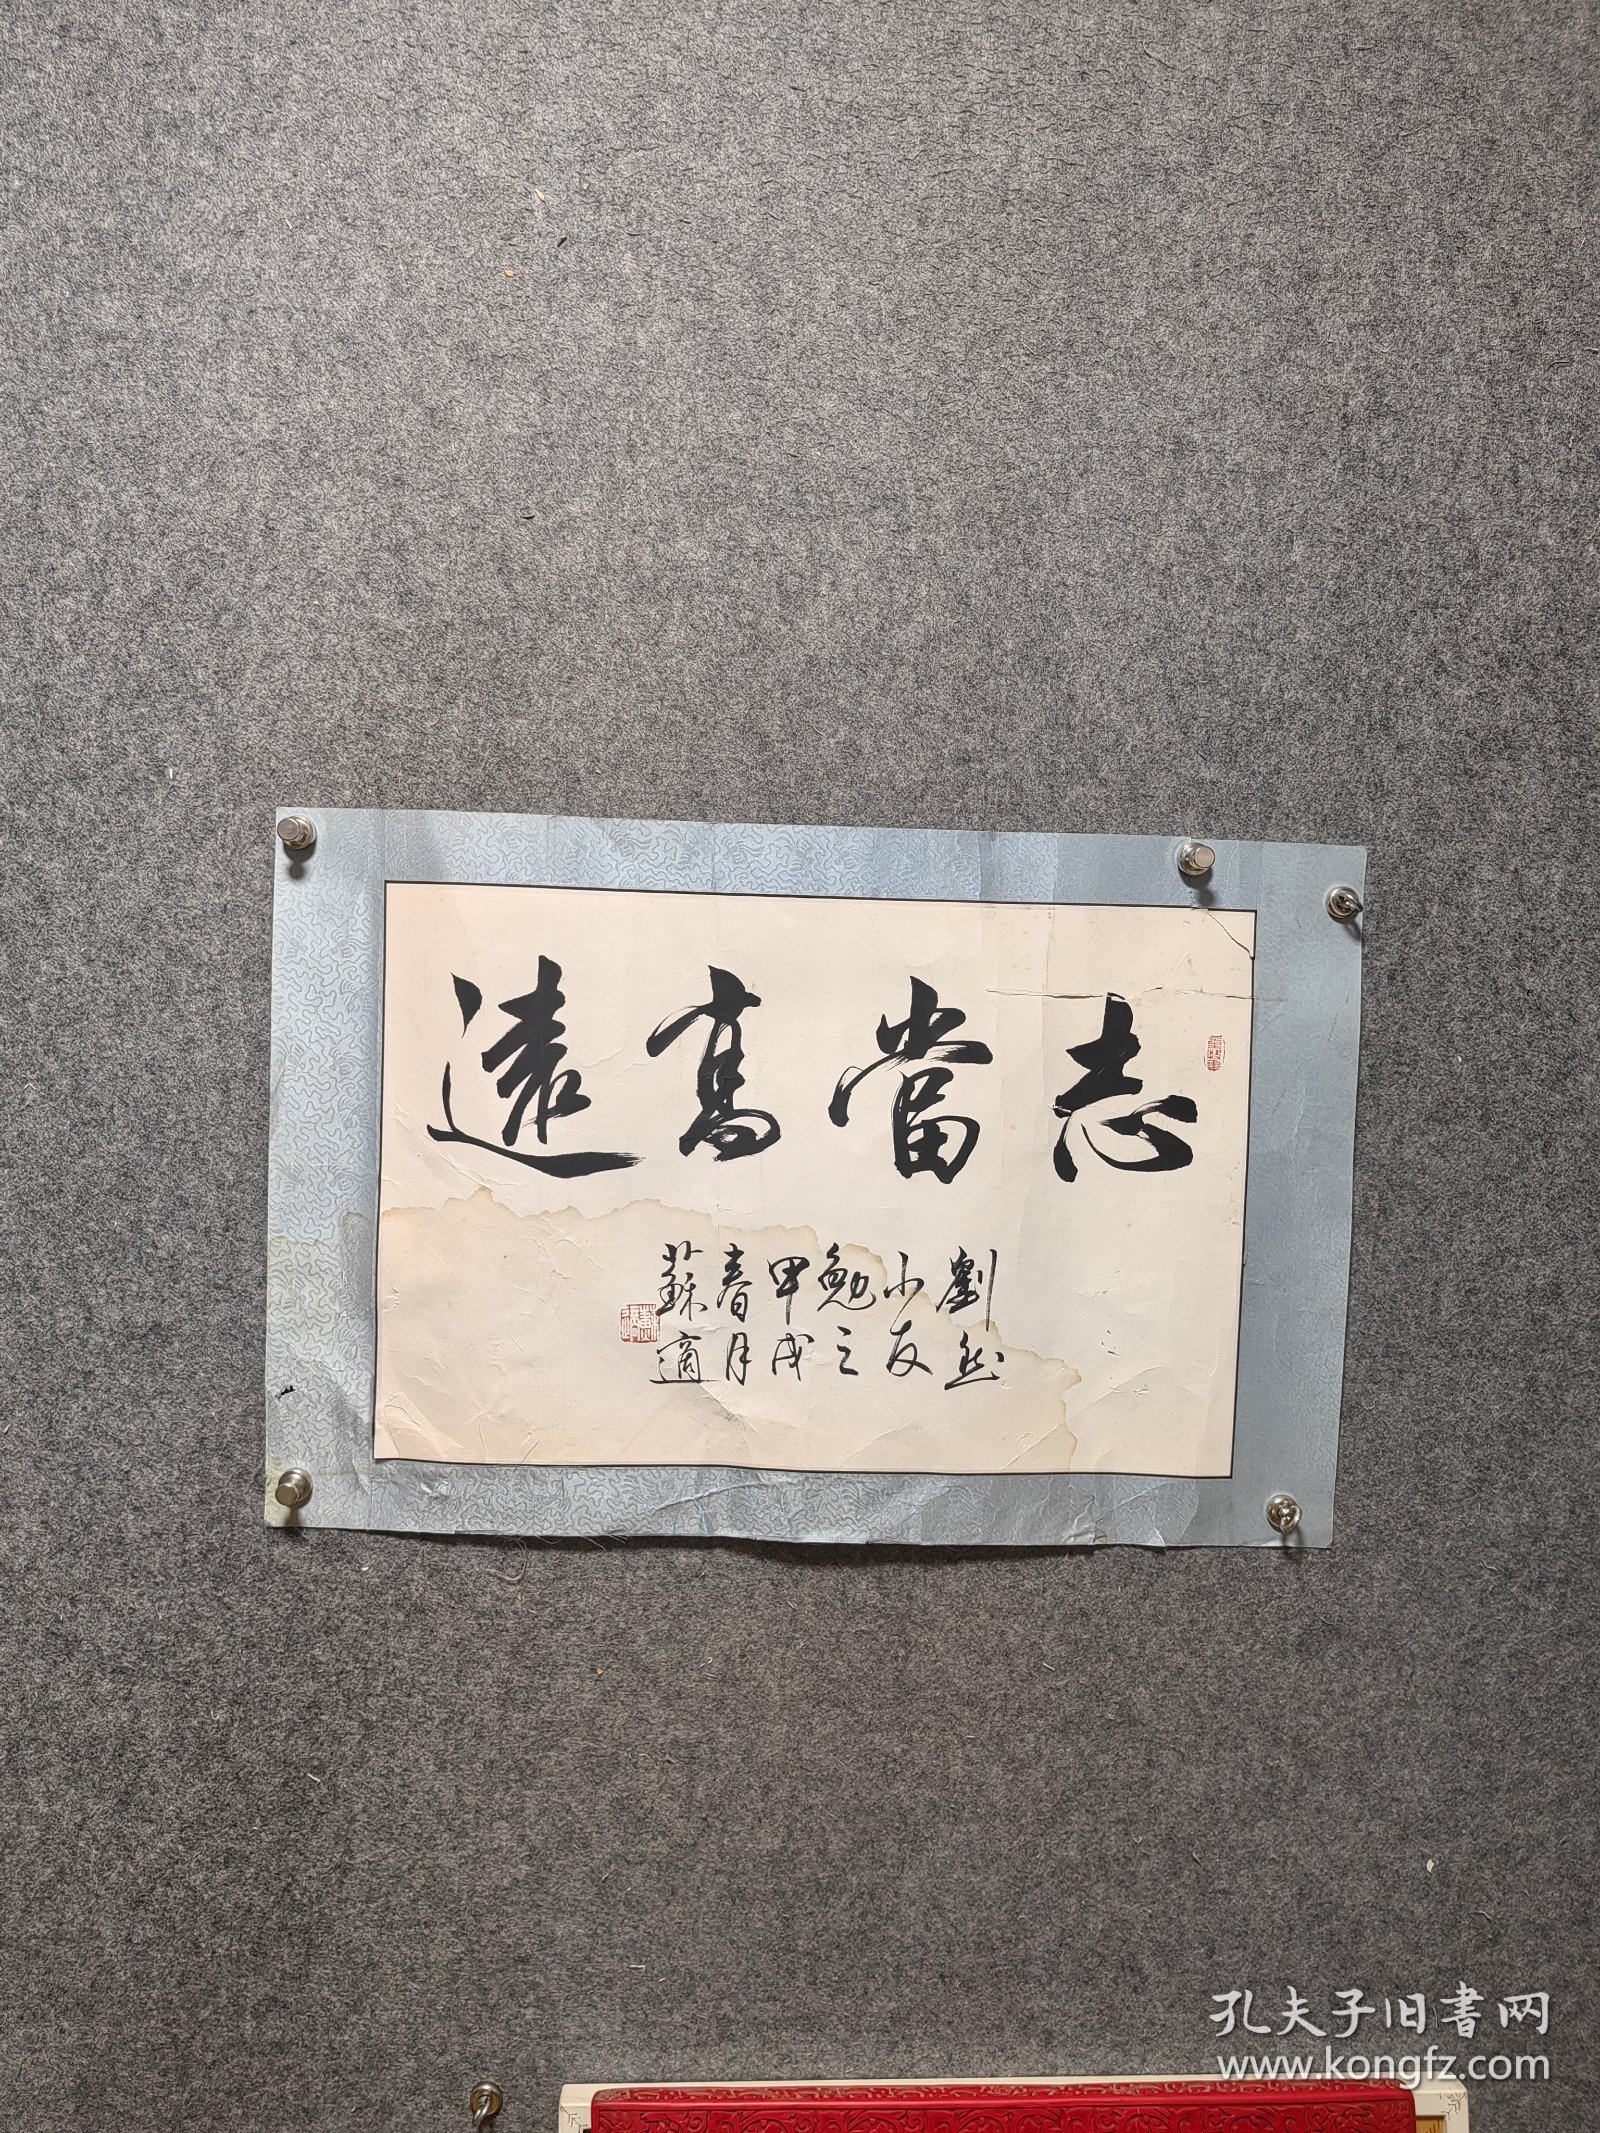 志當高遠
劉然
小友
勉之
甲戌
春月
蘇適
孔夫子旧书网
www.kongfz.com